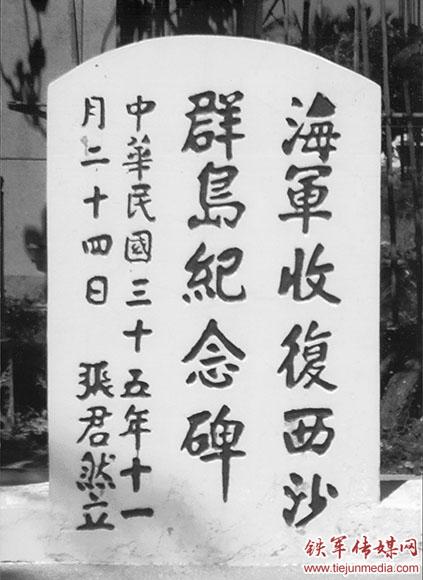 海軍收復西沙
群島紀念碑
中華民國三十五年十一
月二十四日 張君然立
铁军传媒网
www.tiejunmedia.com